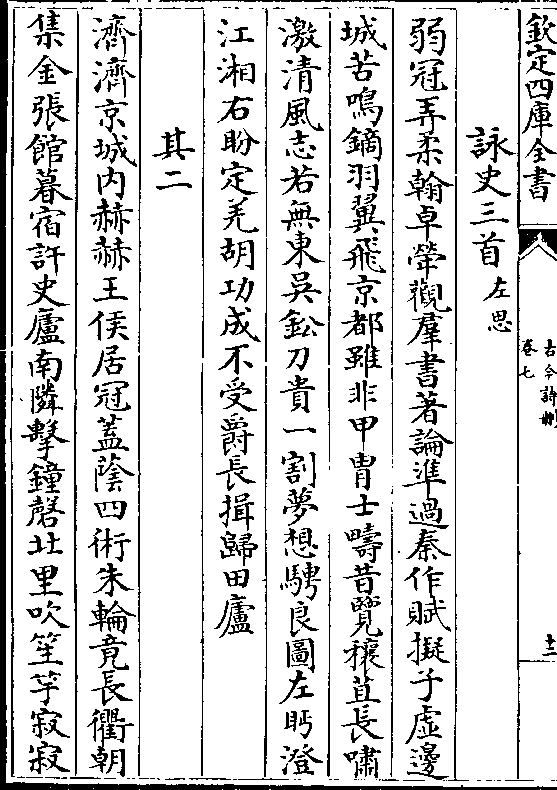 欽定四庫全書
古今詩刪
卷七
十二
詠史三首 左思
弱冠弄柔翰卓犖觀羣書著論準過秦作賦擬子虛邊
城苦鳴鏑羽翼飛京都雖非甲胄士疇昔覽穰苴長嘯
激清風志若無東吳鈆刀貴一割夢想騁良圖左眄澄
江湘右盼定羌胡功成不受爵長揖歸田廬
其二
濟濟京城內赫赫王侯居冠蓋蔭四術朱輪竟長衢朝
集金張館暮宿許史廬南隣擊鐘磬北里吹笙竽寂寂